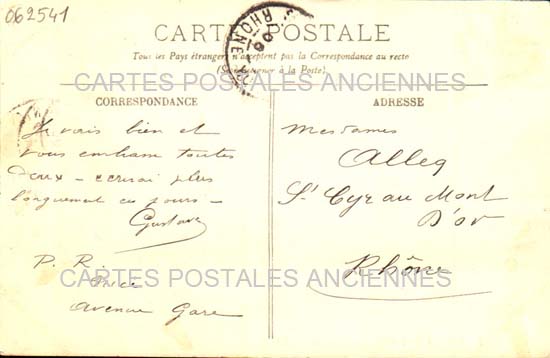 062541
CARTE POSTALE
Tous les Pays étrangers n'acceptent pas la Correspondance au recto
(Se renseigner à la Poste)
RHONE
06
CARTES POSTALES ANCIENNES
CORRESPONDANCE
ADRESSE
Je vais bien et
vous embrasse toutes
Deux - ecrirai plus
longuement ces jours -
Gustave
P. R.
Nice
Avenue Gare
Mesdames
Alleq
St Cyr au Mont
D'or
Rhône
CARTES POSTALES ANCIENNES